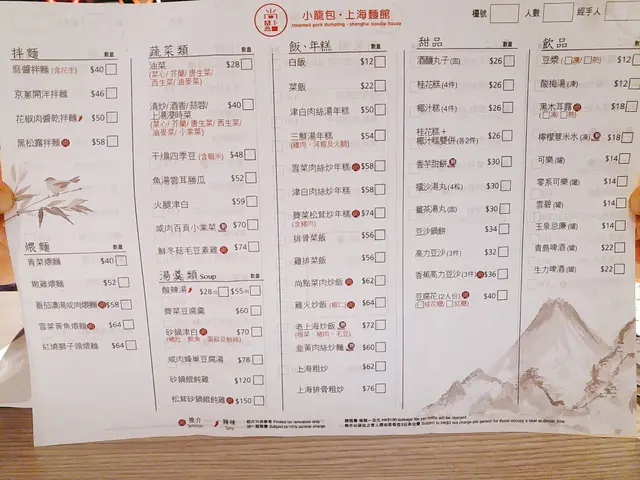 小籠包·上海麵館
steamed pork dumpling · shanghai noodle house
檯號
人數
經手人
拌麵 數量
麻醬拌麵(含花生) $40
京蔥開洋拌麵 $46
花椒肉醬乾拌麵 $50
黑松露拌麵 $58
煨麵 數量
青菜煨麵 $40
嫩雞煨麵 $52
番茄濃湯咸肉煨麵 $58
雪菜黃魚煨麵 $64
紅燒獅子頭煨麵 $64
蔬菜類 數量
油菜 $28
(菜心/芥蘭/唐生菜/
西生菜/油麥菜)
清炒/酒香/蒜蓉/ $40
上湯浸時菜
(菜心/芥蘭/唐生菜/西生菜/
油麥菜/小棠菜)
干煸四季豆(含蝦米) $48
魚湯雲耳勝瓜 $52
火腿津白 $59
咸肉百頁小棠菜 $70
鮮冬菇毛豆素雞 $74
湯羹類 Soup 數量
酸辣湯 $28 $55
薺菜豆腐羹 $60
砂鍋津白 $70
咸肉蜂巢豆腐湯 $78
砂鍋餛飩雞 $120
松茸砂鍋餛飩雞 $150
飯、年糕 數量
白飯 $12
菜飯 $22
津白肉絲湯年糕 $50
三鮮湯年糕 $54
(雞肉、河蝦及火腿)
雪菜肉絲炒年糕 $58
津白肉絲炒年糕 $58
薺菜松茸炒年糕 $74
(含豬肉)
排骨菜飯 $56
雞排菜飯 $56
尚點菜肉炒飯 $62
雞火炒飯(蝦仁) $64
老上海炒飯 $72
韭黃肉絲炒麵 $60
上海粗炒 $62
上海排骨粗炒 $76
甜品 數量
酒釀丸子(齒) $26
桂花糕(4件) $26
椰汁糕(4件) $26
桂花糕+
椰汁糕雙併(各2件) $30
香芋甜餅 $30
擂沙湯丸(4粒) $30
薑茶湯丸 $30
豆沙鍋餅 $34
高力豆沙(3件) $32
香蕉高力豆沙(3件) $36
豆腐花(2人份) $40
(桂花糖/紅糖)
飲品 數量
豆漿(凍/熱) $12
酸梅湯(凍) $12
黑木耳露 $18
(凍/熱)
檸檬薏米水(凍) $18
可樂(罐) $14
零系可樂(罐) $14
雪碧(罐) $14
玉泉忌廉(罐) $14
青島啤酒(罐) $22
生力啤酒(罐) $22
推介
辣味
Spicy
相片只供參考 Photos for reference only
加一服務費 Subject to 10% service charge